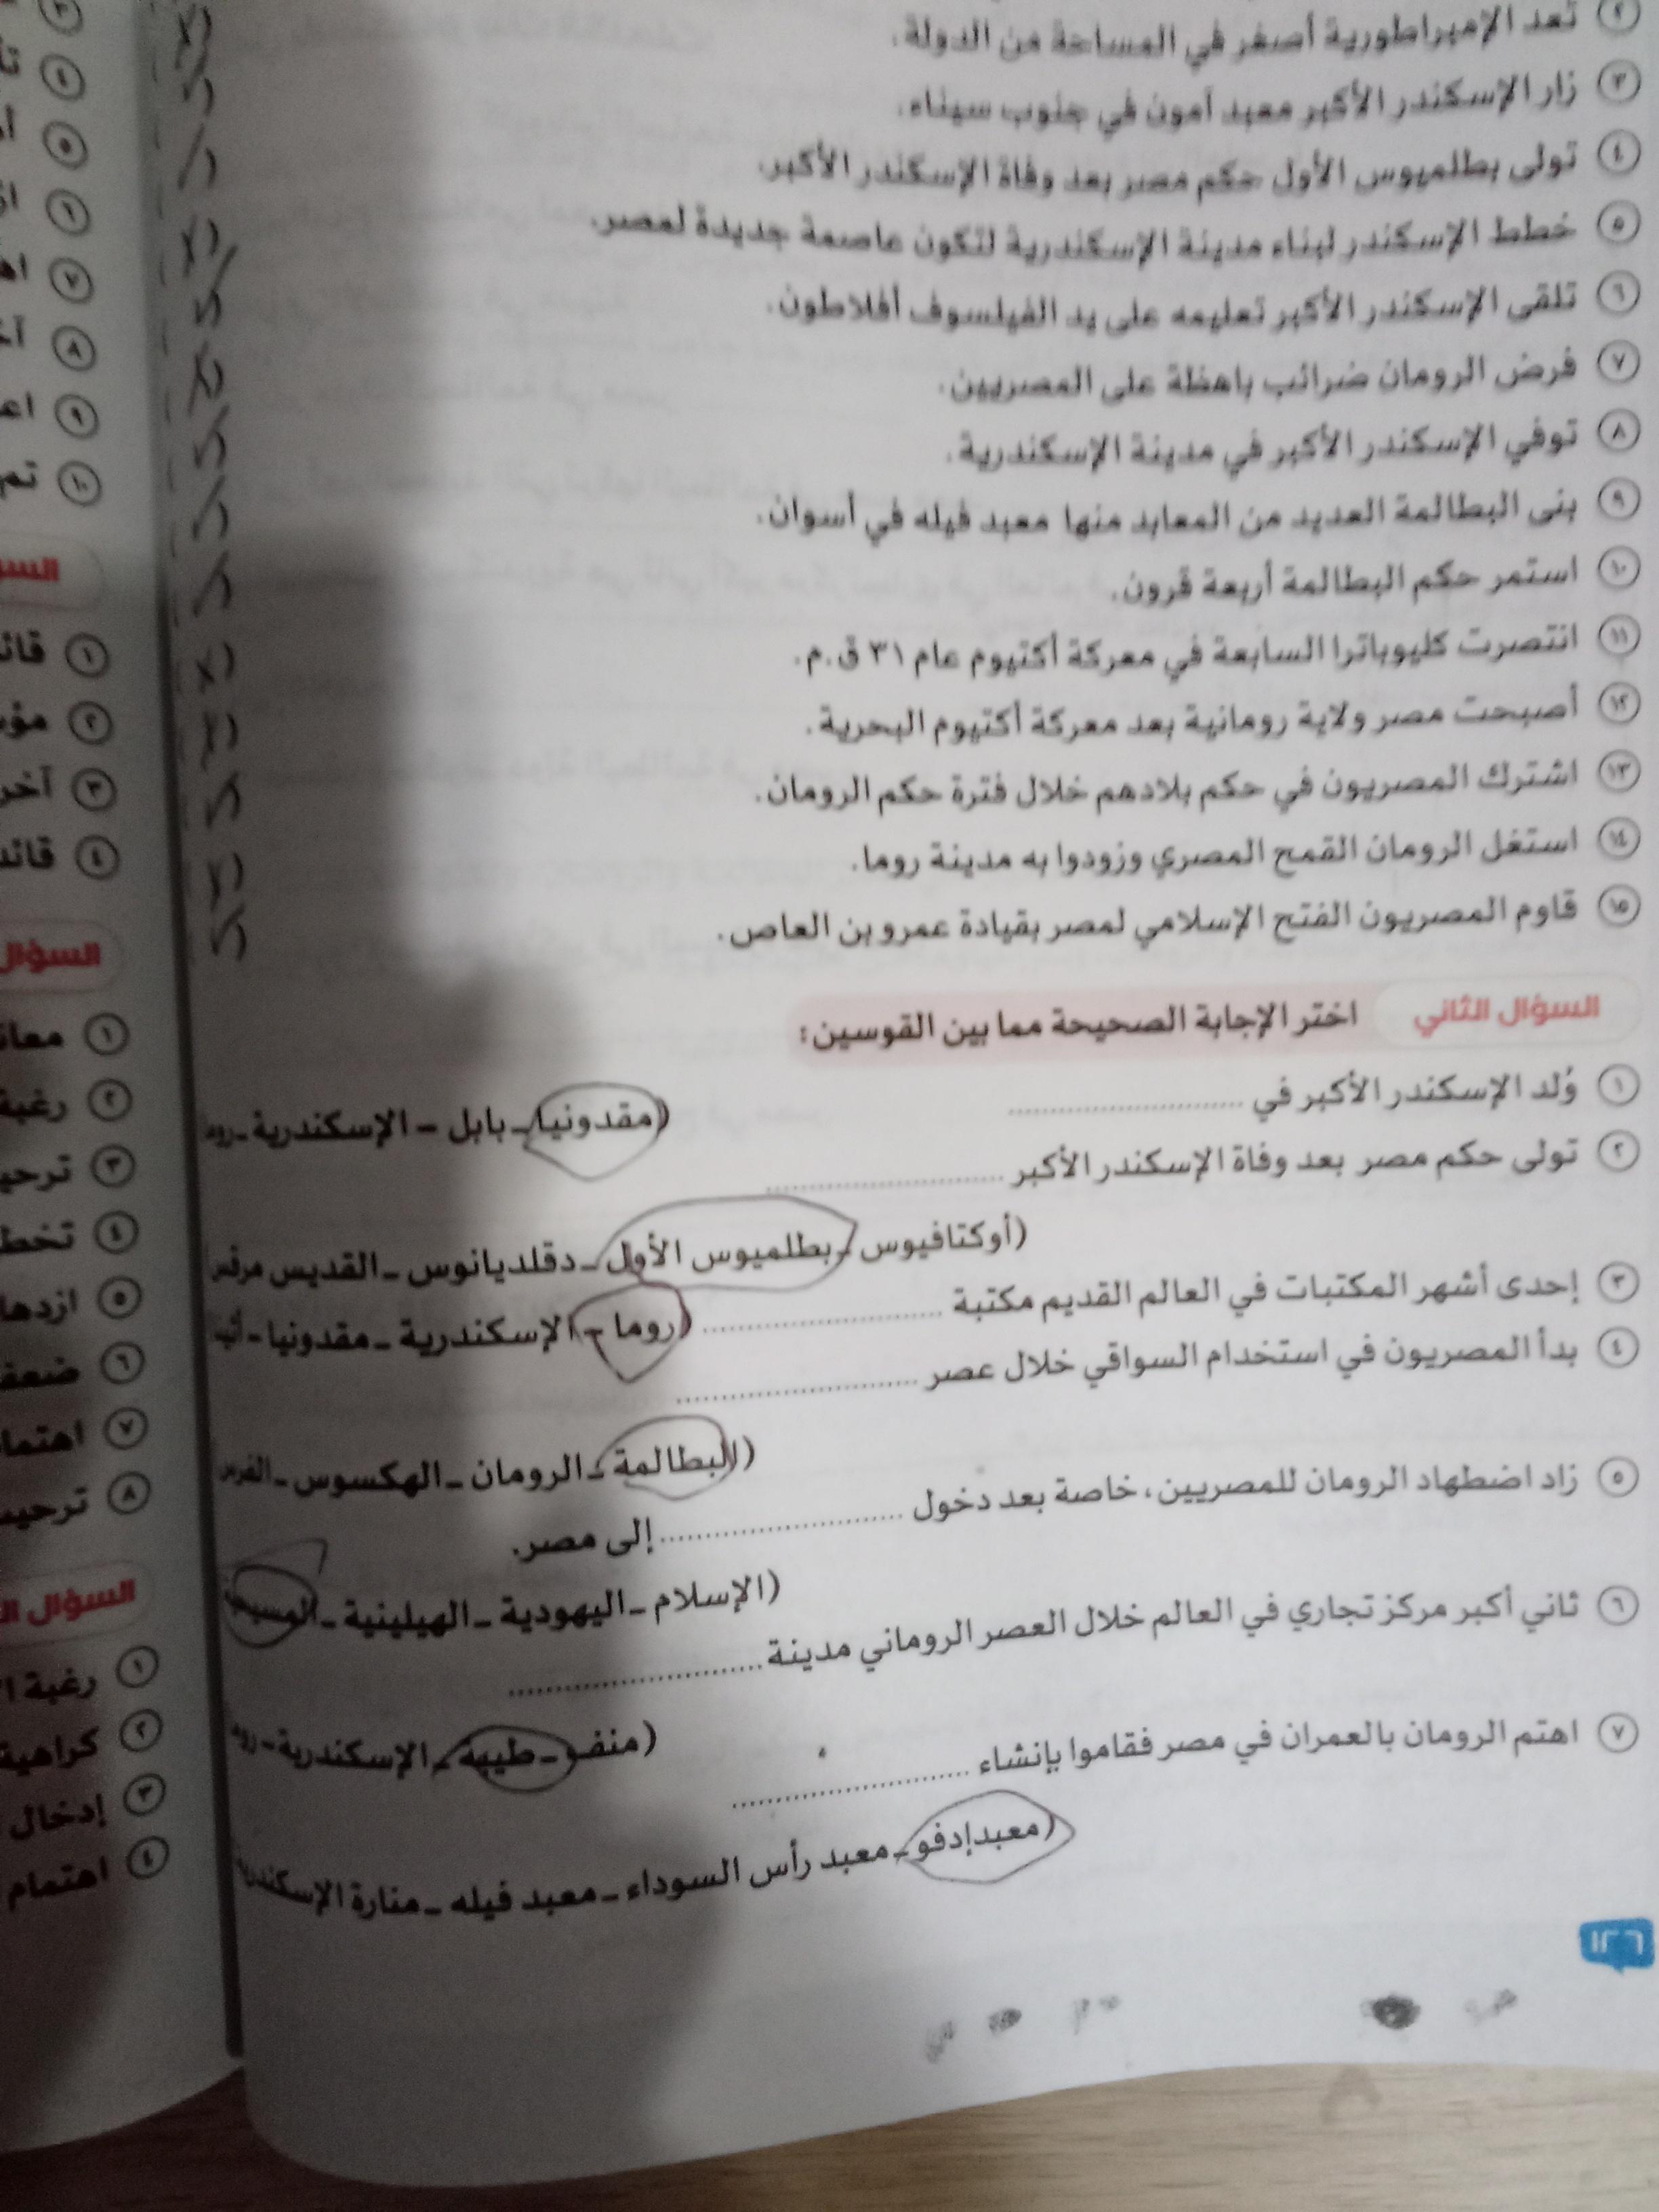 ٢ تعد الإمبراطورية أصغر في المساحة من الدولة.
٣ زار الإسكندر الأكبر معبد آمون في جنوب سيناء.
٤ تولى بطلميوس الأول حكم مصر بعد وفاة الإسكندر الأكبر.
٥ خطط الإسكندر لبناء مدينة الإسكندرية لتكون عاصمة جديدة لمصر.
٦ تلقى الإسكندر الأكبر تعليمه على يد الفيلسوف أفلاطون.
٧ فرض الرومان ضرائب باهظة على المصريين.
٨ توفي الإسكندر الأكبر في مدينة الإسكندرية.
٩ بنى البطالمة العديد من المعابد منها معبد فيله في أسوان.
١٠ استمر حكم البطالمة أربعة قرون.
١١ انتصرت كليوباترا السابعة في معركة أكتيوم عام ٣١ ق.م.
١٢ أصبحت مصر ولاية رومانية بعد معركة أكتيوم البحرية.
١٣ اشترك المصريون في حكم بلادهم خلال فترة حكم الرومان.
١٤ استغل الرومان القمح المصري وزودوا به مدينة روما.
١٥ قاوم المصريون الفتح الإسلامي لمصر بقيادة عمرو بن العاص.
السؤال الثاني اختر الإجابة الصحيحة مما بين القوسين:
١ وُلد الإسكندر الأكبر في ....................
(مقدونيا - بابل - الإسكندرية -
٢ تولى حكم مصر بعد وفاة الإسكندر الأكبر ....................
(أوكتافيوس - بطلميوس الأول - دقلديانوس - القديس مرقس
٣ إحدى أشهر المكتبات في العالم القديم مكتبة ....................
(روما - الإسكندرية - مقدونيا -
٤ بدأ المصريون في استخدام السواقي خلال عصر ....................
(البطالمة - الرومان - الهكسوس - الفرس
٥ زاد اضطهاد الرومان للمصريين، خاصة بعد دخول .................... إلى مصر.
(الإسلام - اليهودية - الهيلينية - المسيحية
٦ ثاني أكبر مركز تجاري في العالم خلال العصر الروماني مدينة ....................
(منف - طيبة - الإسكندرية -
٧ اهتم الرومان بالعمران في مصر فقاموا بإنشاء ....................
(معبد إدفو - معبد رأس السوداء - معبد فيله - منارة الإسكندرية
١٢٦
٤
٥
٦
٧
٨
٩
١٠ تم
١
٢
٣ آخر
٤
السؤال
١
٢ رغبة
٣
٤
٥
٦
٧
٨
السؤال
١ رغبة
٢ كراهية
٣ إدخال
٤ اهتمام